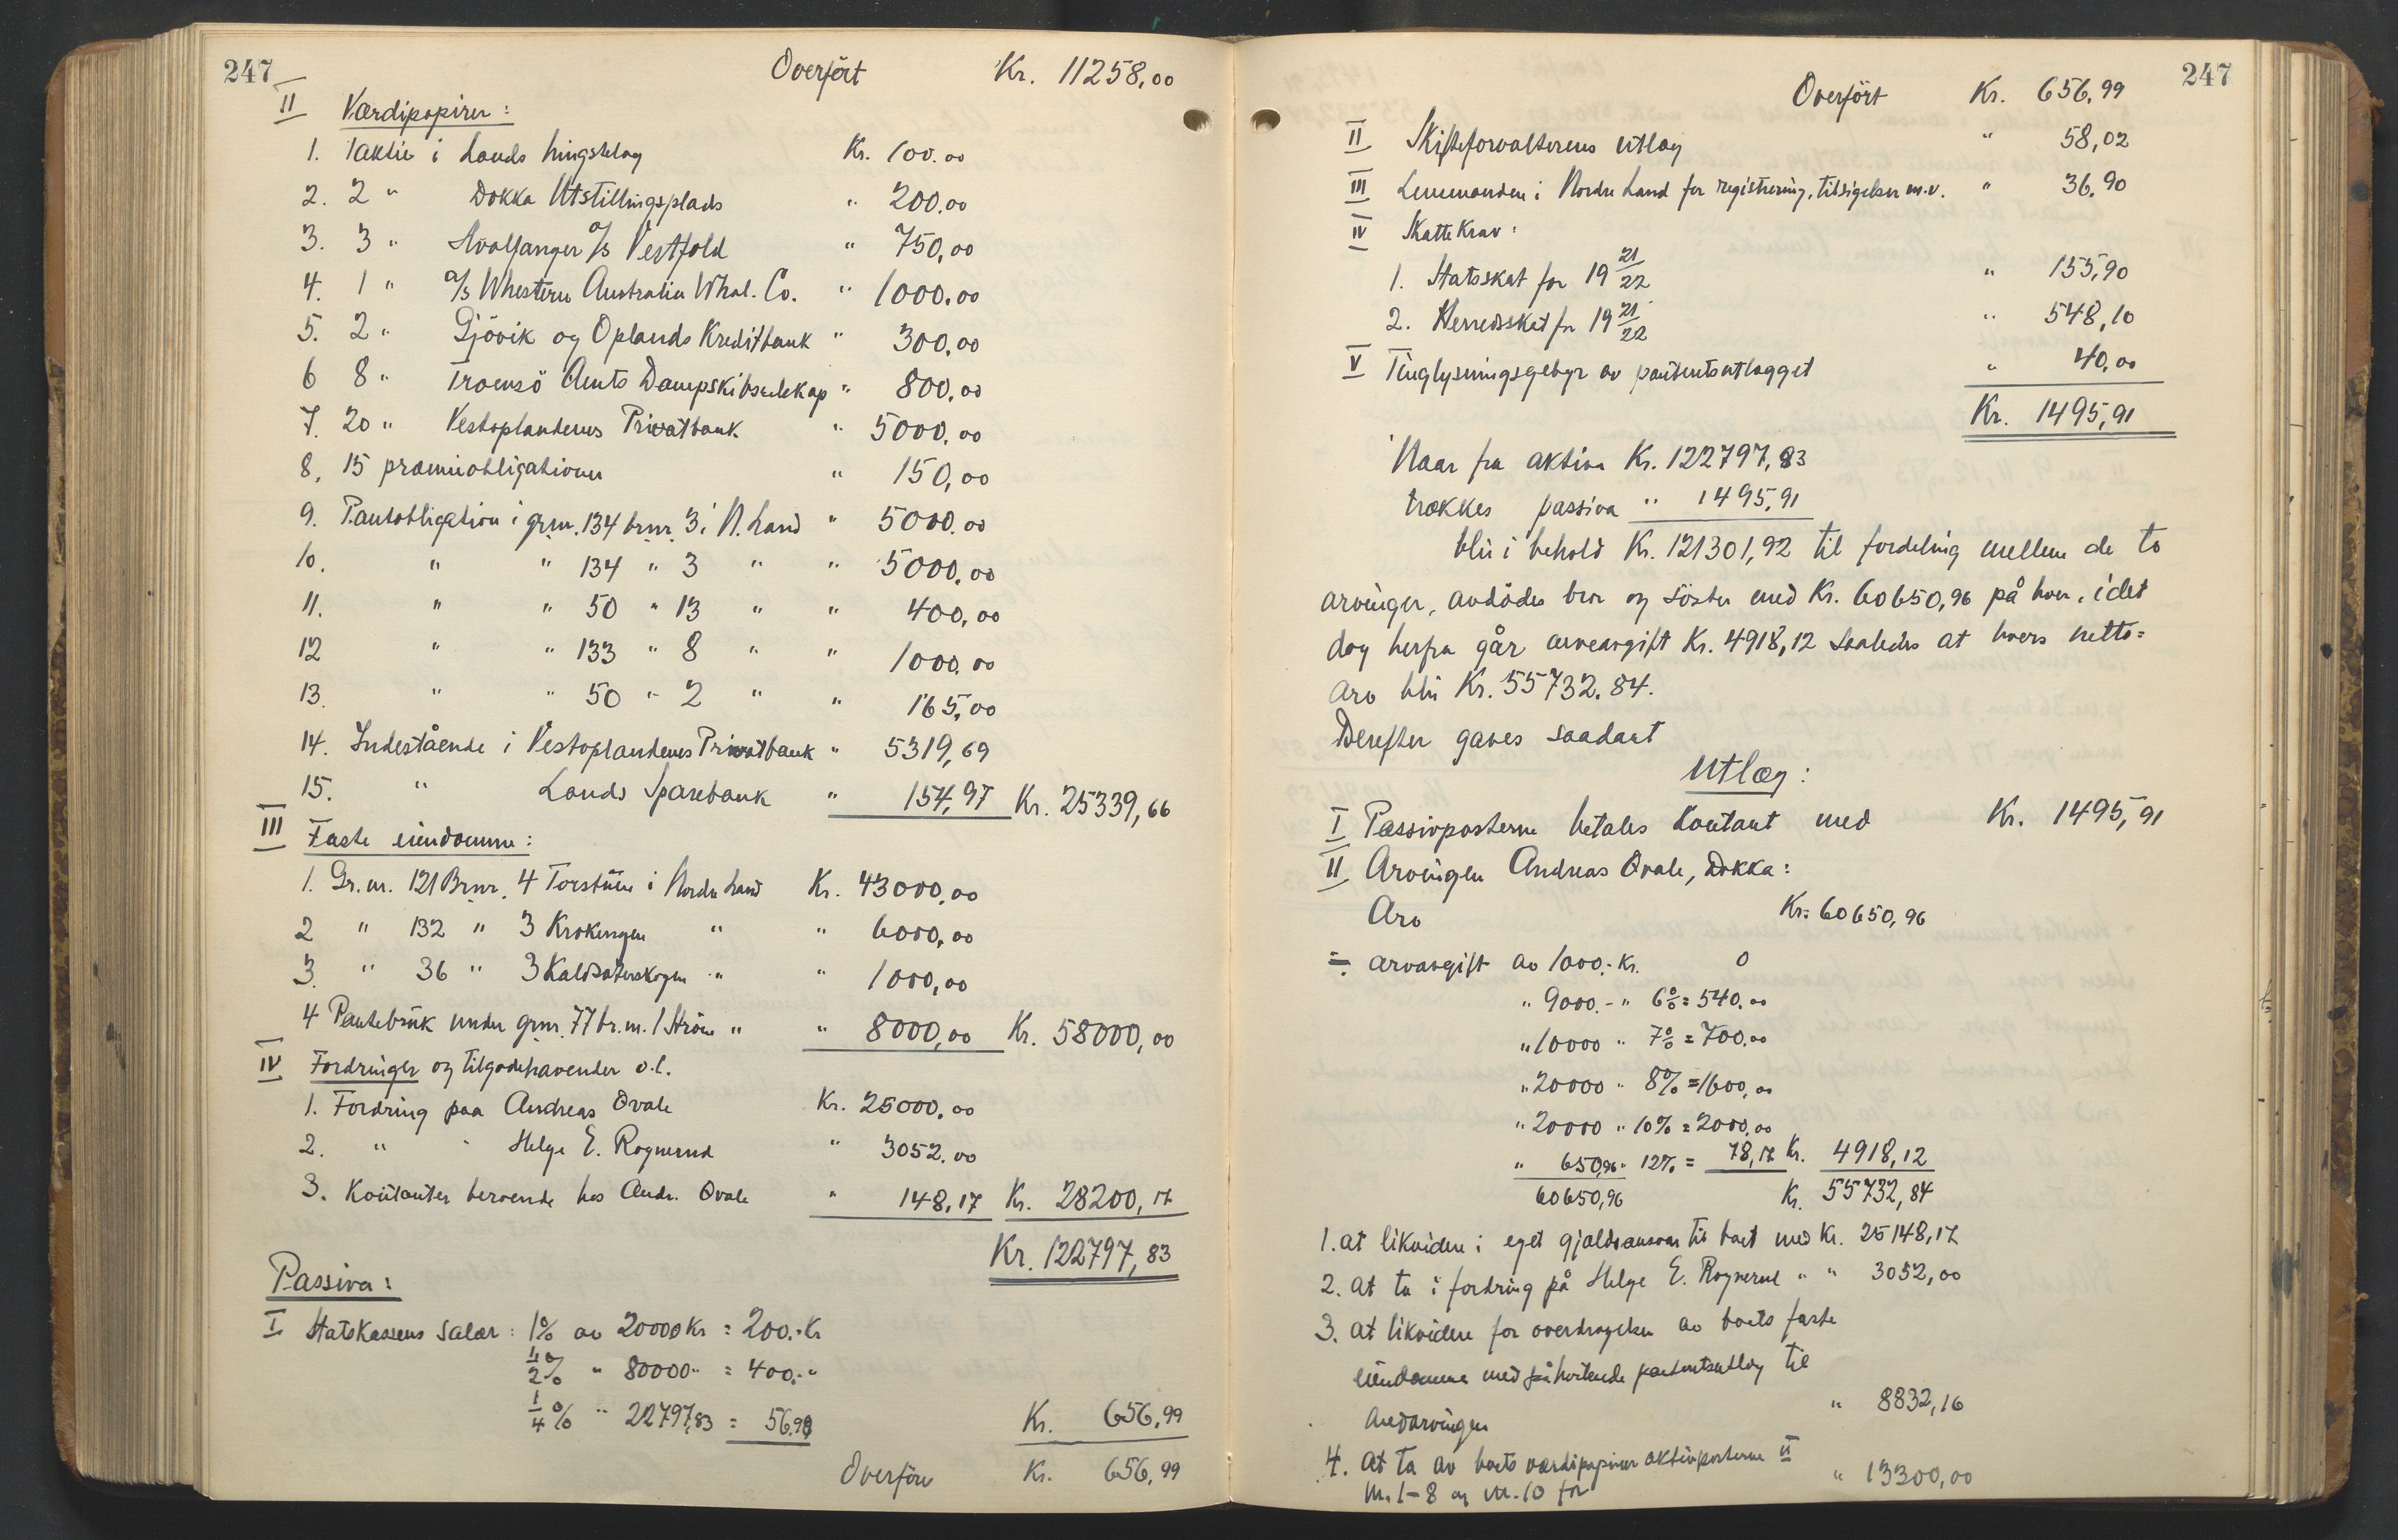 247
Overført Kr. 11258,00
II Værdipapirer:
1. 1 aktie i Lands hingstelag Kr. 100.00
2. 2 " Dokka Utstillingsplads " 200.00
3. 3 " Hvalfanger a/s Vestfold " 750,00
4. 1 " a/s Whestern Australia Whal. Co. " 1000.00
5. 2 " Gjövik og Oplands Kreditbank " 300,00
6 8 " Tromsö Amts Dampskibsselskap " 800,00
7. 20 " Vestoplandenes Privatbank " 5000,00
8. 15 præmieobligationer " 150,00
9. Pantobligation i grnr. 134 brnr. 3 i N. Land " 5000.00
10. " " 134 " 3 " " 5000,00
11. " " 50 " 13 " " 400,00
12 " " 133 " 8 " " 1000.00
13. " " 50 " 2 " " 165,00
14. Indestående i Vestoplandenes Privatbank " 5319,69
15. " Lands Sparebank " 154,97 Kr. 25339,66
III Faste eiendomme:
1. Gr.nr. 121 Brnr. 4 Torstuen i Nordre Land Kr. 43000,00
2 " 132 " 3 Krokengen " " 6000,00
3. " 36 " 3 Kaldsæterskogen " " 1000,00
4 Pantebruk under grnr. 77 br.nr. 1 " " 8000,00 Kr. 58000,00
IV Fordringer og tilgodehavender o.l.
1. Fordring paa Andreas Ovale Kr. 25000.00
2. " " Helge E. Rognerud " 3052.00
3. Kontanter beroende hos Andr. Ovale " 148,17 Kr. 28200,17
Kr. 122797,83
Passiva:
I Statskassens salær: 1% av 20000 Kr = 200.- Kr
1/2% " 80000 " = 400.- "
1/4% " 22797,83 = 56.99 Kr. 656,99
Overføres Kr. 656,99
247
Overført Kr. 656,99
II Skifteforvalterens utlæg " 58,02
III Lensmanden i Nordre Land for registrering, tilsigelser m.v. " 36,90
IV Skattekrav:
1. Statsskat for 19 21/22 " 155,90
2. Herredsskat for 19 21/22 " 548,10
V Tinglysningsgebyr av panteutlægget " 40,00
Kr. 1495,91
Naar fra aktiva Kr. 122797,83
trækkes passiva " 1495,91
blir i behold Kr. 121301,92 til fordeling mellem de to
arvinger, avdödes bror og söster med Kr. 60650,96 på hver, idet
dog herfra går arveavgift Kr. 4918,12 saaledes at hvers netto=
arv blir Kr. 55732.84.
Derefter gaves saadant
Utlæg:
I Passivposterne betales kontant med Kr. 1495,91
II Arvingen Andreas Ovale, Dokka:
Arv Kr. 60650,96
÷ arvavgift av 1000.- Kr. 0
" 9000.- " 6% = 540.00
" 10000 " 7% = 700.00
" 20000 " 8% = 1600,00
" 20000 " 10% = 2000,00
" 650,96 " 12% = 78,12 Kr. 4918,12
60650,96 Kr. 55732,84
1. at likvidere i eget gjældsansvar til boet med Kr. 25148,17
2. at ta i fordring på Helge E. Rognerud " " 3052,00
3. at likvidere for overdragelsen av boets faste
eiendomme med påheftende til
medarvingen " 8832,16
4. at ta av boets værdipapirer aktivposterne II
nr. 1-8 og nr. 10 for " 13300,00